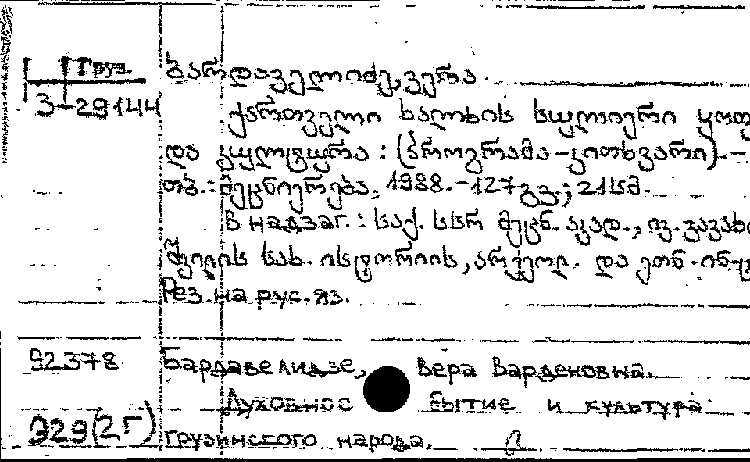 Груз.
ბარდაველიძე, ვერა.
3-29144
ქართველი ხალხის სულიერი
და კულტურა : (პროგრამა-კითხვარი). –
თბ. : მეცნიერება, 1988. - 127 გვ. ; 21 სმ.
В надзаг. : საქ. სსრ მეცნ. აკად., ივ. ჯავახი
შვილის სახ. ისტორიის, არქეოლ. და ეთნ.
Рез. на рус. яз.
92378 Бардавелидзе, Вера Варденовна.
Духовное бытие и культура
929(2Г) грузинского народа.